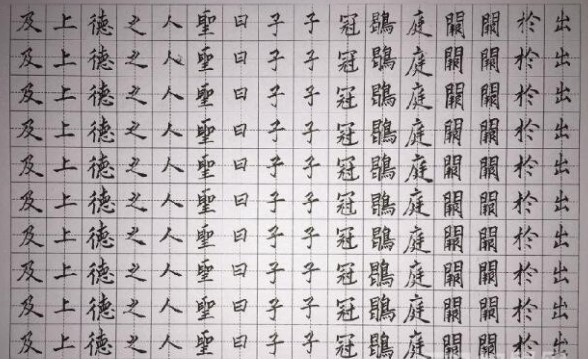 出出出出出出出出出出
於於於於於於於於於於
闕闕闕闕闕闕闕闕闕闕
闕闕闕闕闕闕闕闕闕闕
庭庭庭庭庭庭庭庭庭庭
鶡鶡鶡鶡鶡鶡鶡鶡鶡鶡
冠冠冠冠冠冠冠冠冠冠
子子子子子子子子子子
子子子子子子子子子子
曰曰曰曰曰曰曰曰曰曰
聖聖聖聖聖聖聖聖聖聖
人人人人人人人人人人
之之之之之之之之之之
德德德德德德德德德德
上上上上上上上上上上
及及及及及及及及及及